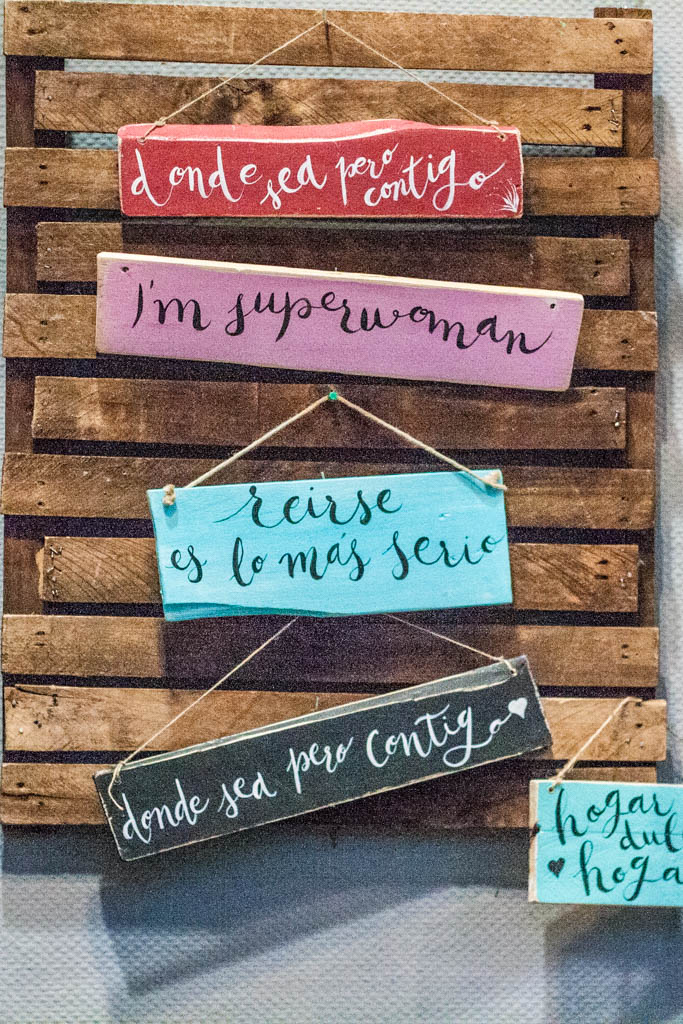 donde sea pero contigo
I'm superwoman
reirse
es lo más serio
donde sea pero contigo
hogar
dul
hoga